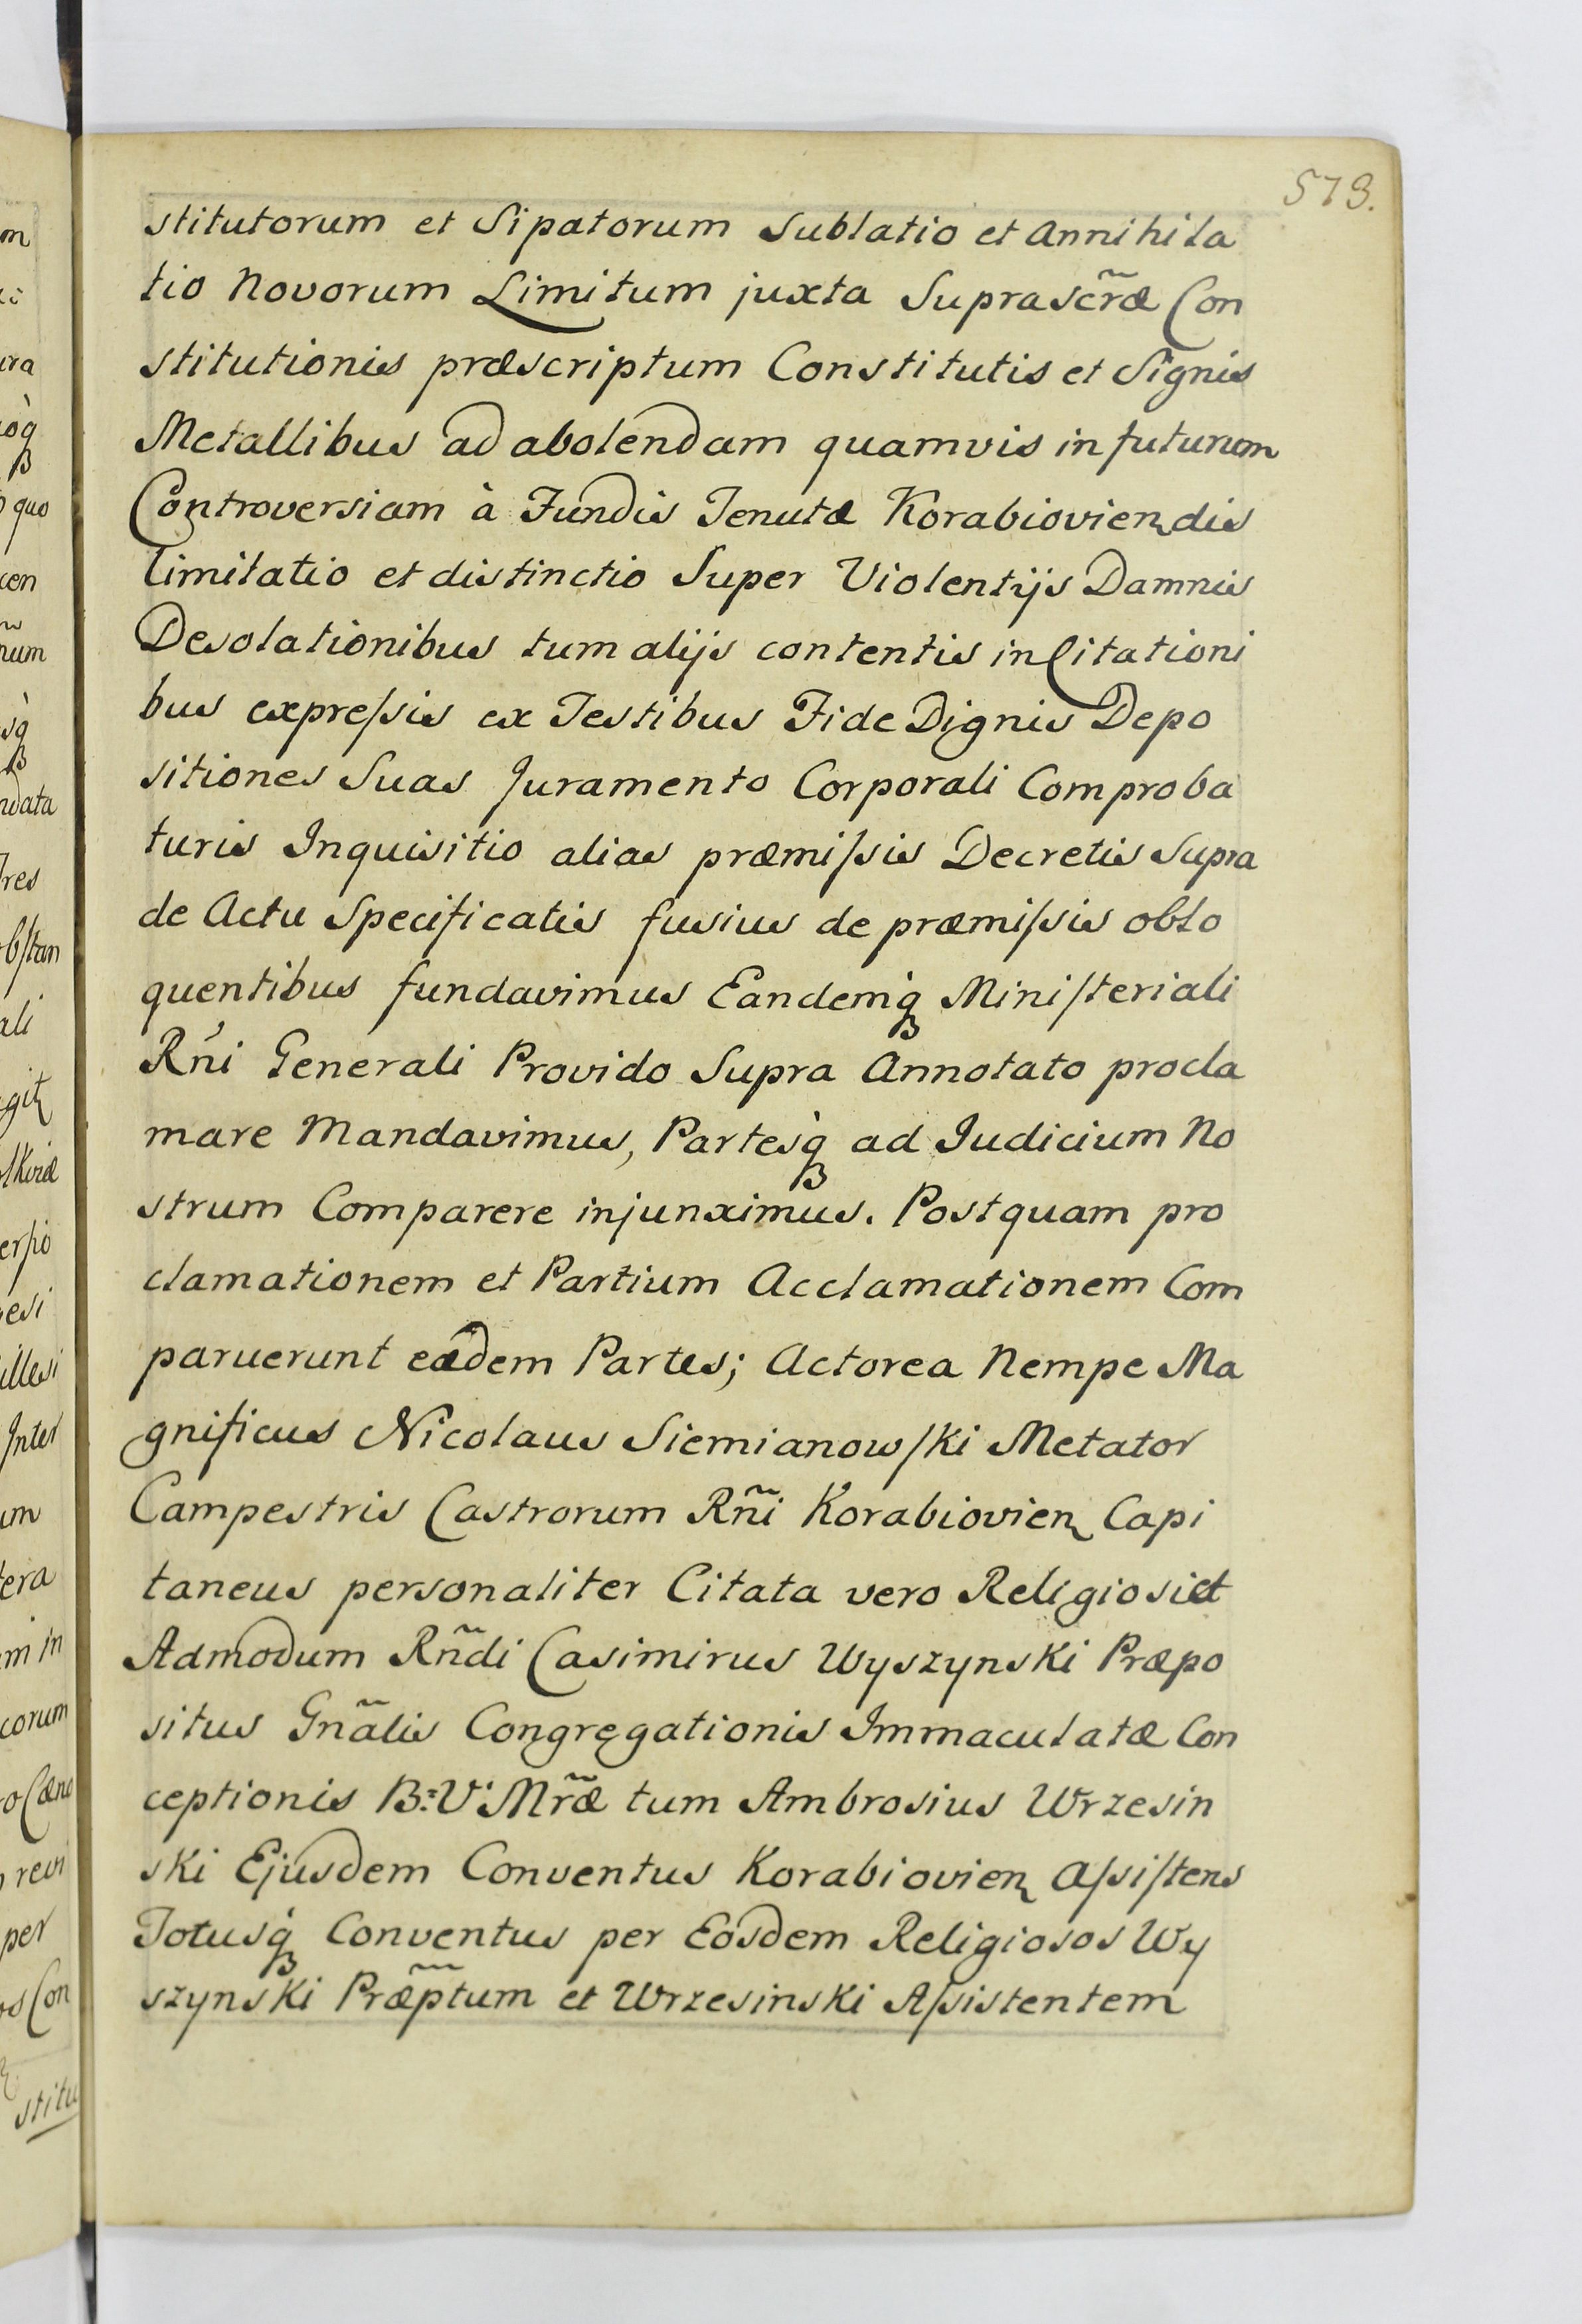 573.
stitutorum et Sipatorum Sublatio et Annihila
tio Novorum Limitum juxta Suprascr̃æ Con
stitutionis præscriptum Constitutis et Signis
Metallibus ad abolendam quamvis in futurum
Controversiam à Fundis Tenutæ Korabioviendis
limitatio et distinctio Super Violentijs Damnis
Desolationibus tum alijs contentis in Citationi
bus expreſsis ex Testibus Fide Dignis Depo
sitiones Suas Juramento Corporali Comproba
turis Inquisitio alias præmiſsis Decretis Supra
de Actu Specificatis fusius de præmiſsis oblo
quentibus fundavimus Eandemq́ꝫ Miniſteriali
Rńi Generali Provido Supra Annotato procla
mare Mandavimus, Partesq̀ꝫ ad Judicium No
strum Comparere injunximus. Postquam pro
clamationem et Partium Acclamationem Com
paruerunt eædem Partes; Actorea Nempe Ma
gnificus Nicolaus Siemianowſki Metator
Campestris Castrorum Rñi Korabiovien Capi
taneus personaliter Citata vero Religiosi et
Admodum Rñdi Casimirus Wyszynski Præpo
situs Gnãlis Congregationis Immaculatæ Con
ceptionis B: V: Mr̃æ tum Ambrosius Wrzesin
ski Ejusdem Conventus Korabiovien Aſsiſtens
Totusq̀ꝫ Conventus per Eosdem Religiosos Wy
szynski Præp̃tum et Wrzesinski Aſsistentem